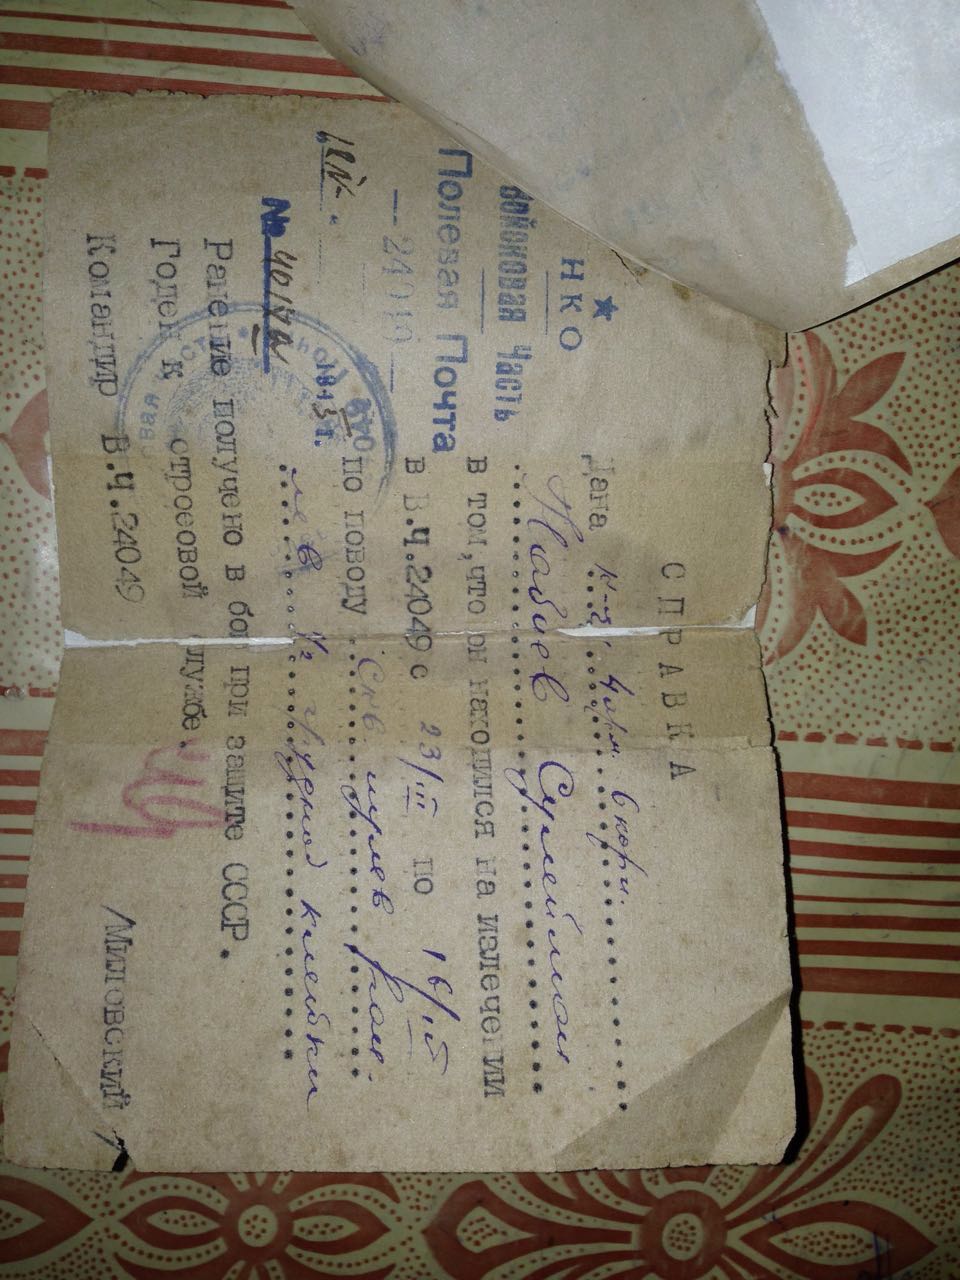 НКО
Войсковая Часть
Полевая Почта
№ 401
СПРАВКА
Дана к-цу
Набиев Сулейман
в том, что он находился на излечении
в В.Ч.24049 с 23/III по 16/IV
по поводу
грудной клетки
Ранение получено в бою при защите СССР.
Годен к строевой службе.
Командир В.Ч.24049 /Миловский/